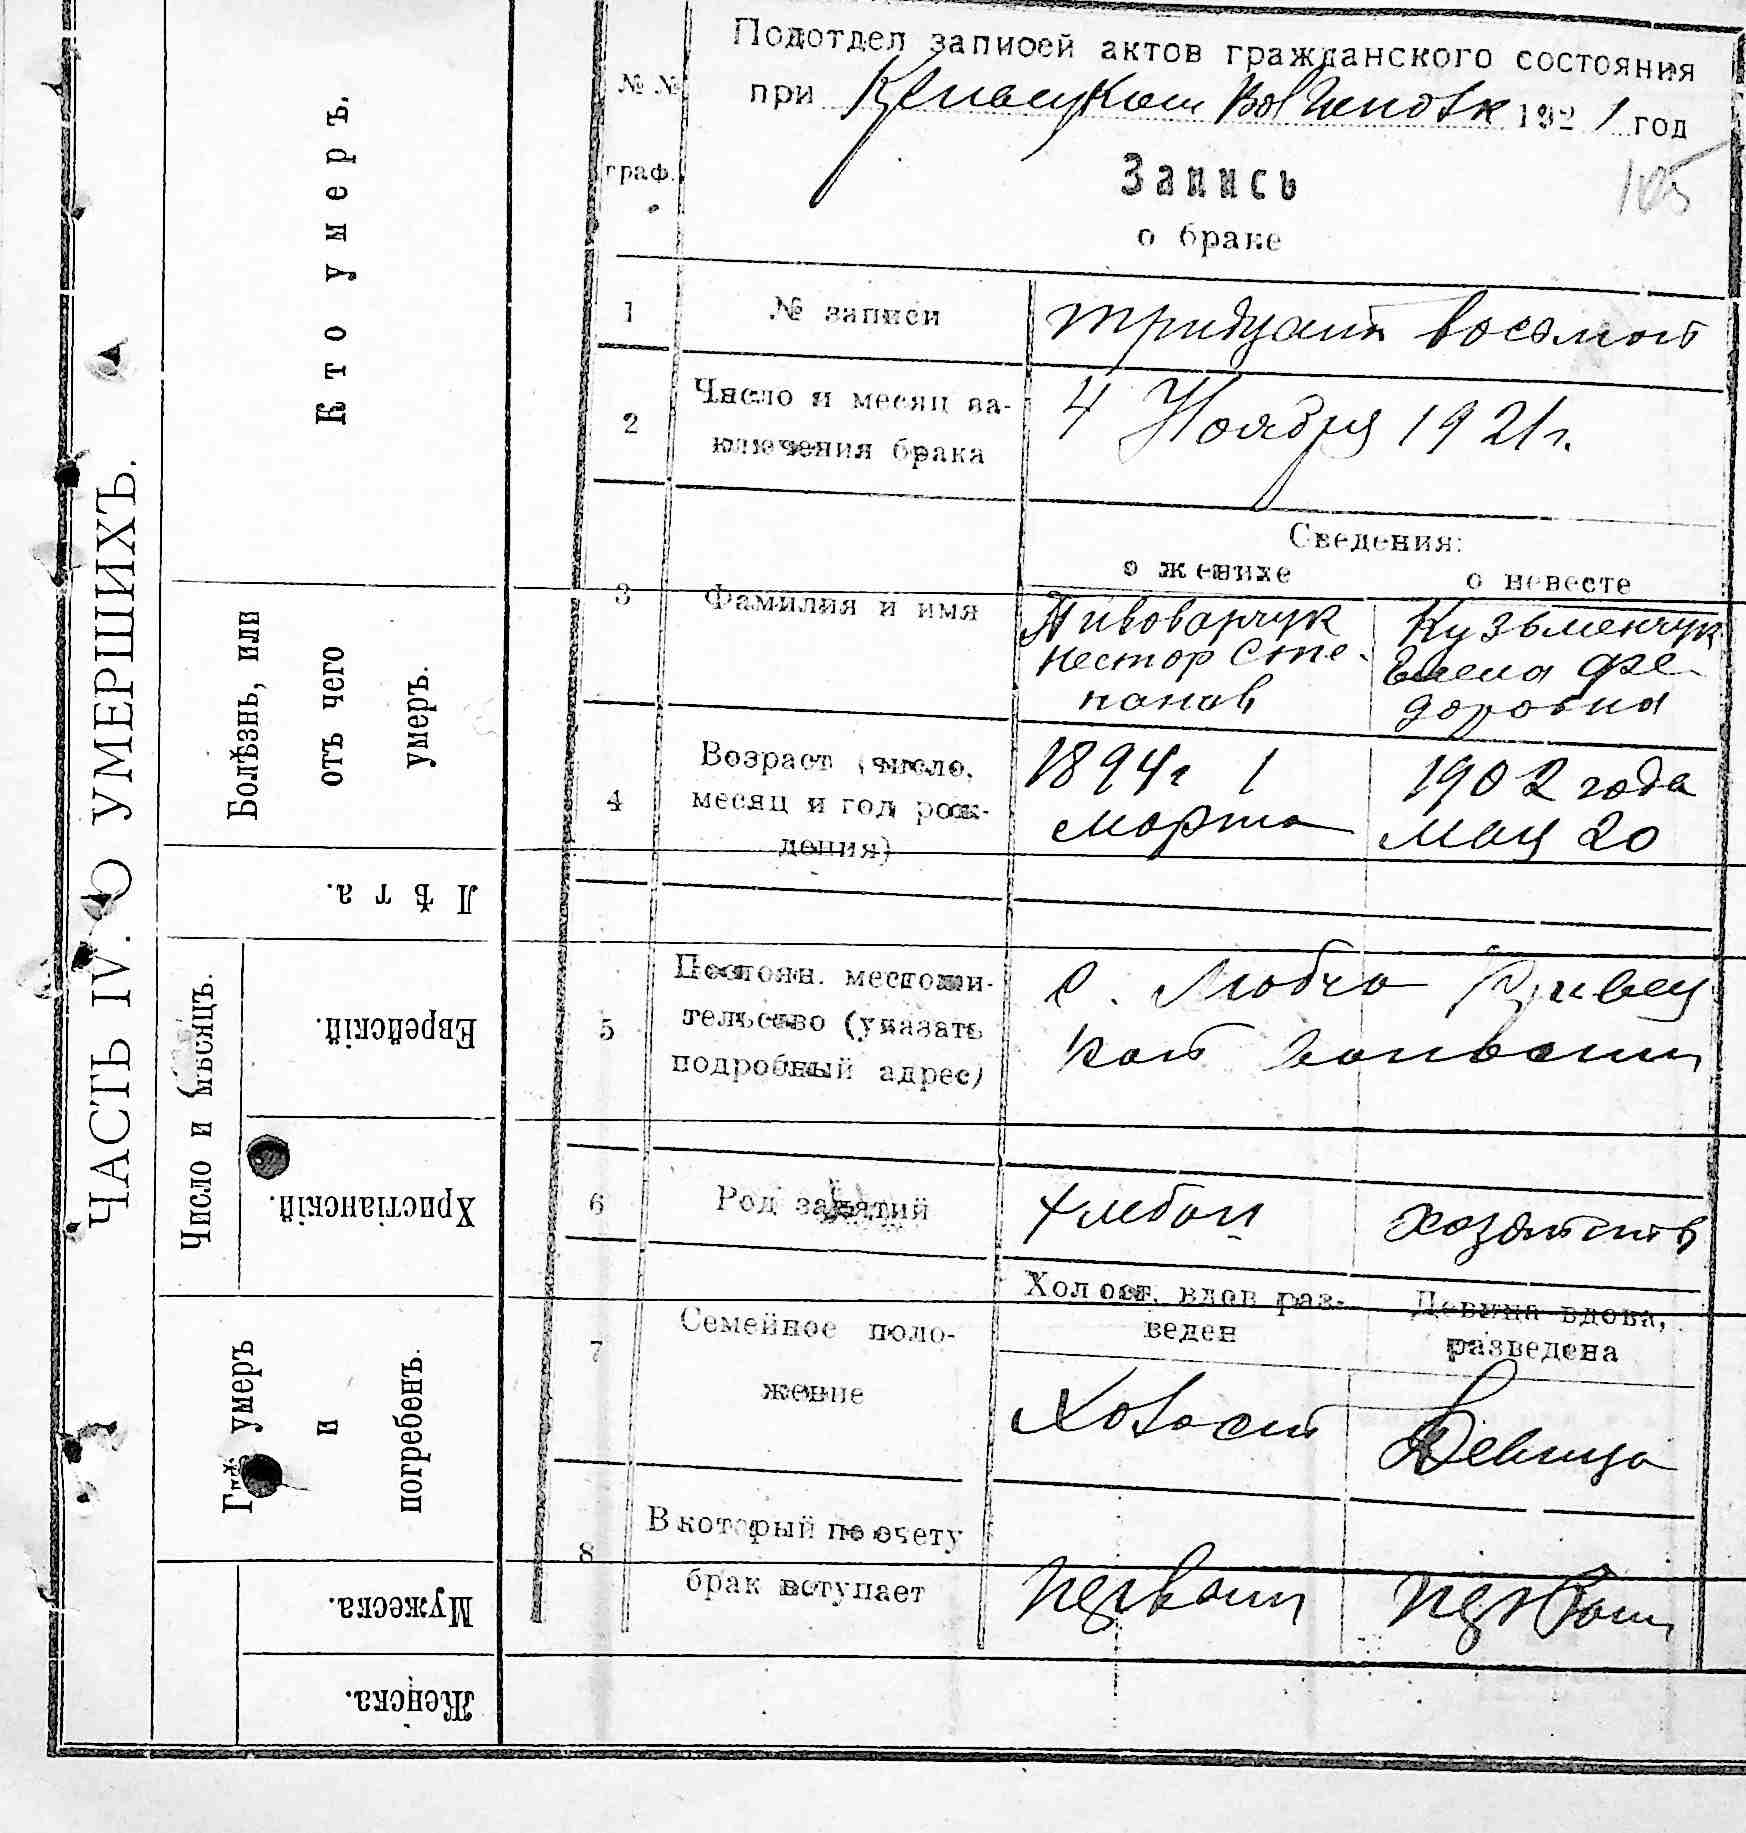 Подотдел записей актов гражданского состояния
при Волисполк 1921 год
№ №
граф.
105
Запись
о браке
1 № записи тридцать восьмой
2 Число и месяц за-
ключения брака
4 Ноября 1921 г.
Сведения:
о женихе о невесте
3 Фамилия и имя
Пивоварчук
Нестор Сте-
панов
Кузьменчук
Елена Фе-
доровна
4 Возраст (число,
месяц и год рож-
дения)
1894 г 1
марта
1902 года
мая 20
5 Постоян. местожи-
тельство (указать
подробный адрес)
с. Любча
6 Род занятий хлебоп
7 Семейное поло-
жение
Холост, вдов раз-
веден
Девица вдова,
разведена
Холост Девица
8 В который по счету
брак вступает
первый первый
ЧАСТЬ IV. О УМЕРШИХЪ.
Кто умеръ.
Болѣзнь, или
отъ чего
умеръ.
Лѣта.
Число и мѣсяцъ.
Еврейскій.
Христіанскій.
Гдѣ умеръ
и
погребенъ.
Мужеска.
Женска.